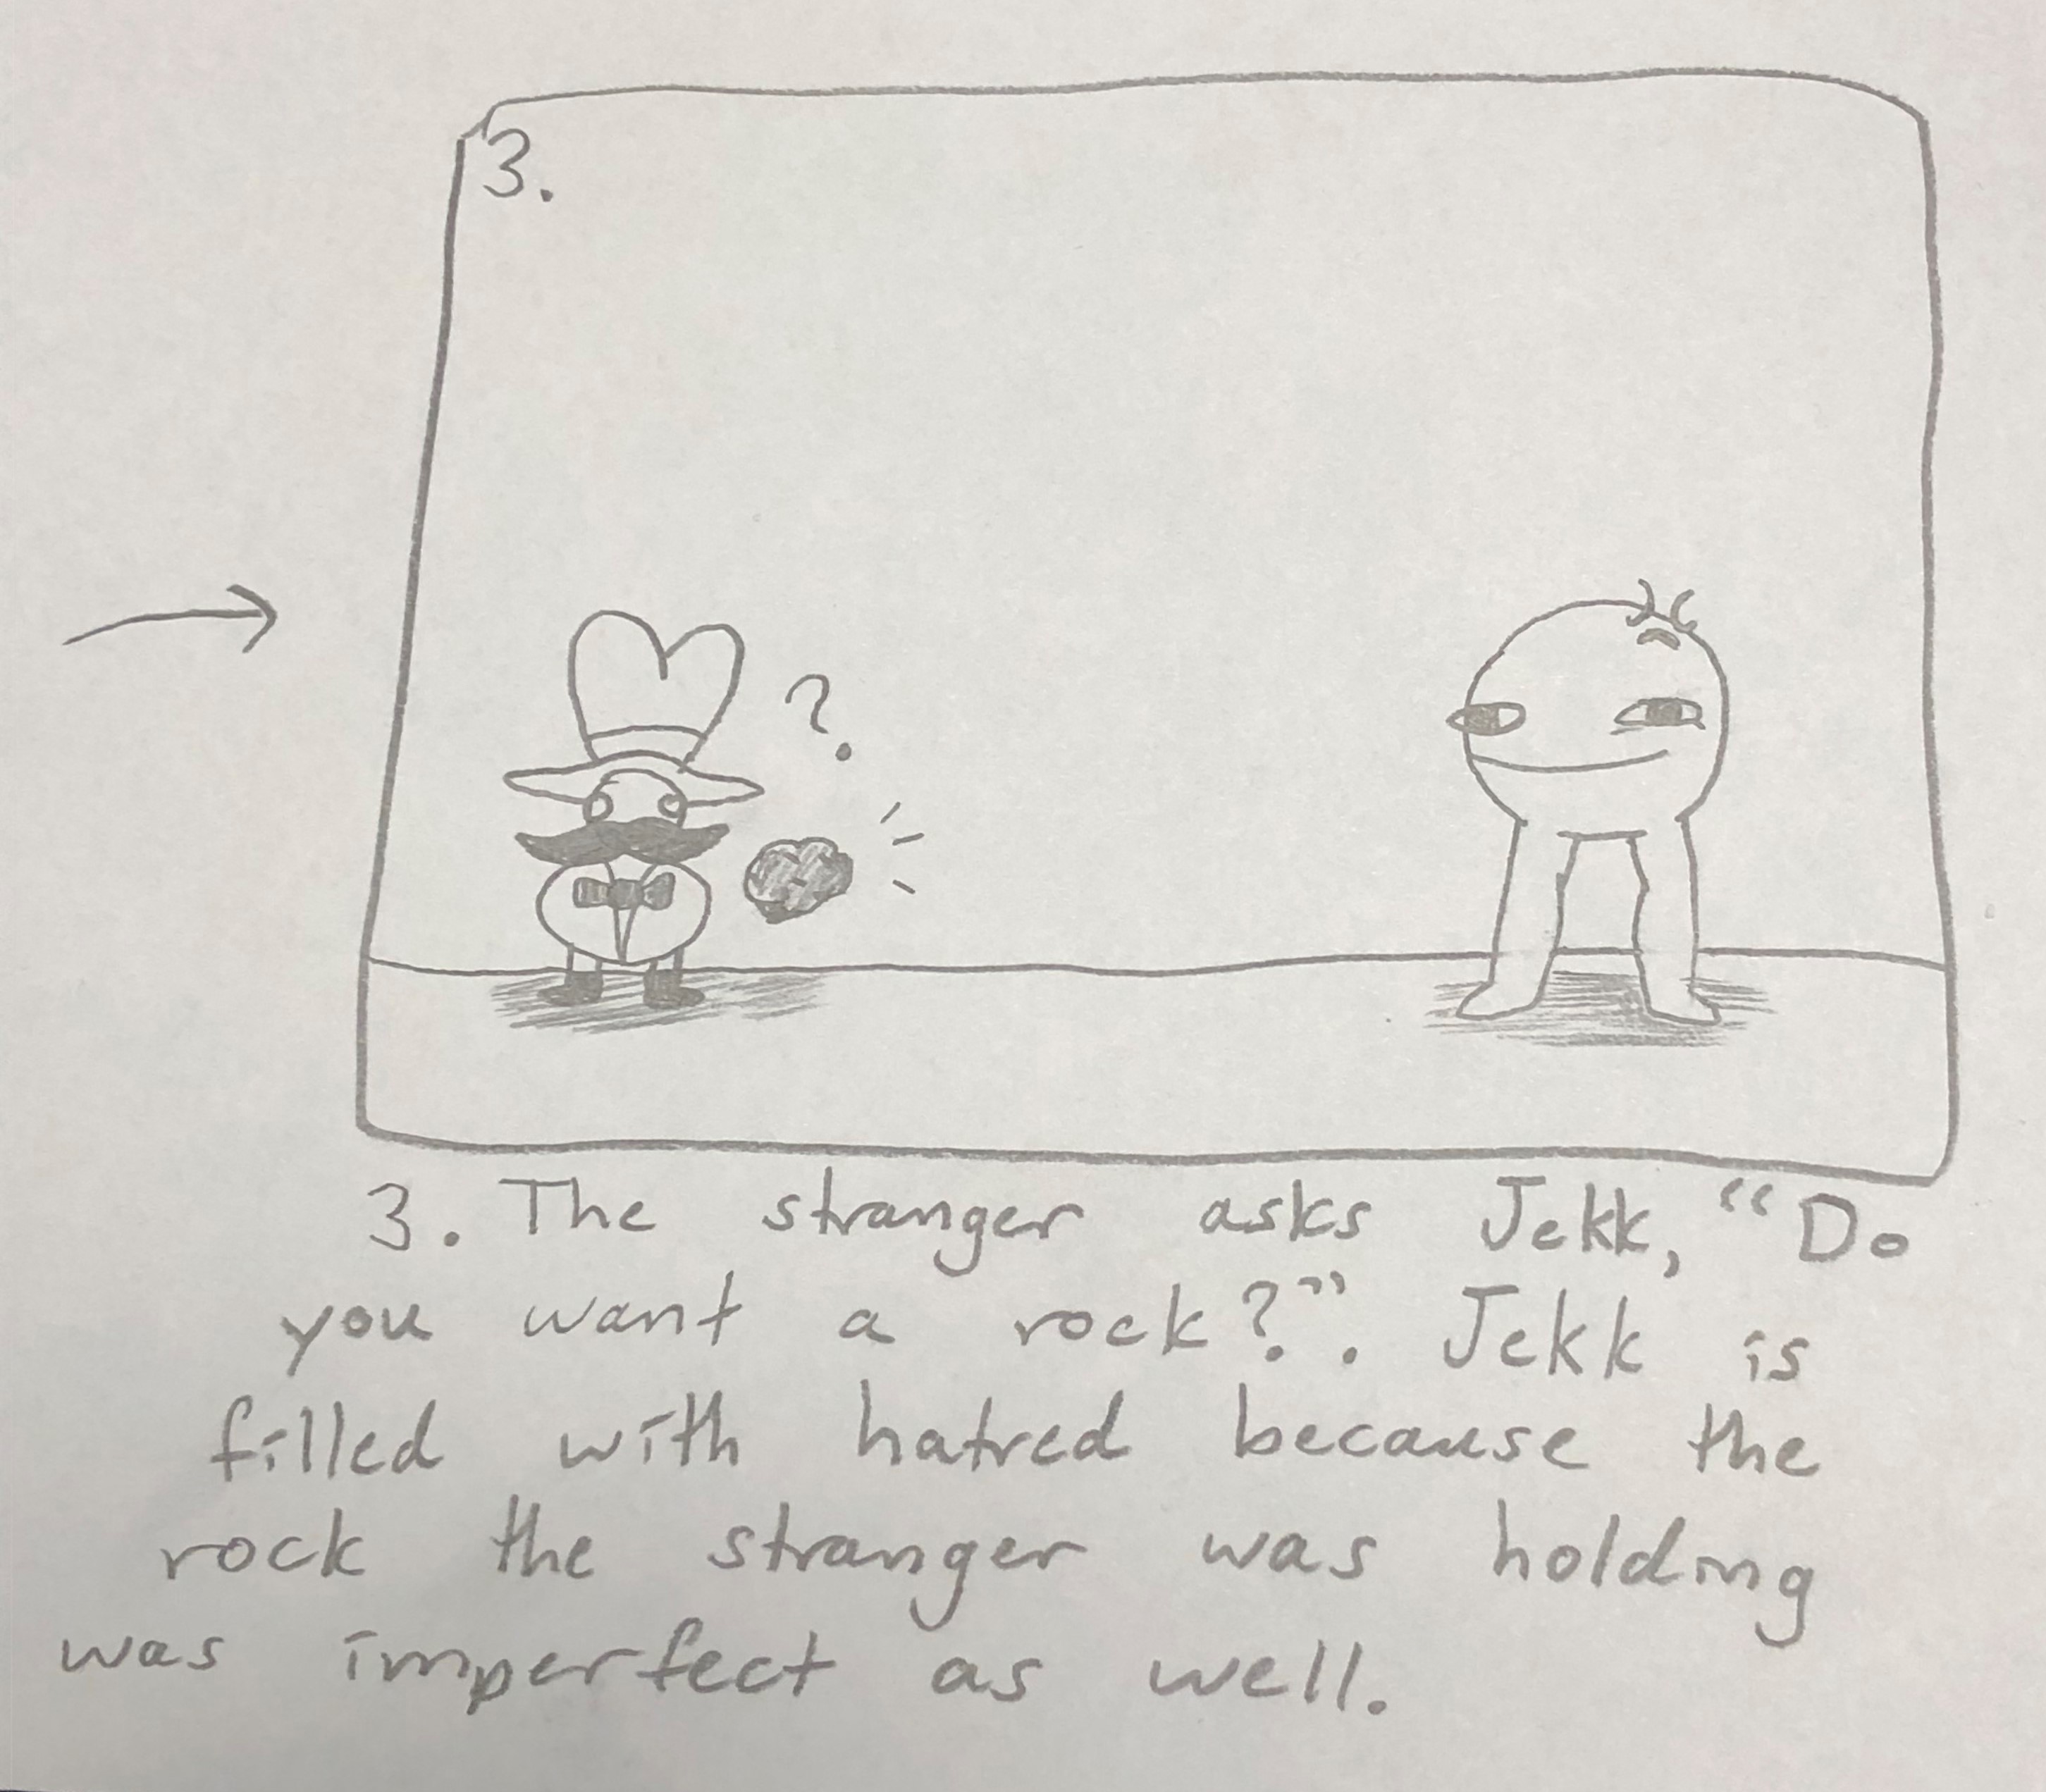 3.
?
3. The stranger asks Jekk, “Do
you want a rock?”. Jekk is
filled with hatred because the
rock the stranger was holding
was imperfect as well.